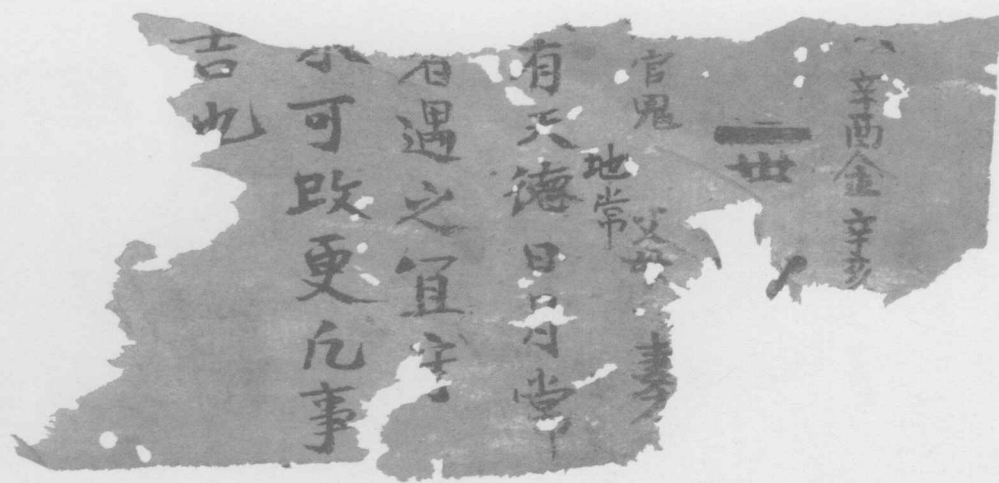 辛酉金 辛亥
世
官鬼 父母
地常
有天德日月常
遇之宜
不可改更凡事
吉也